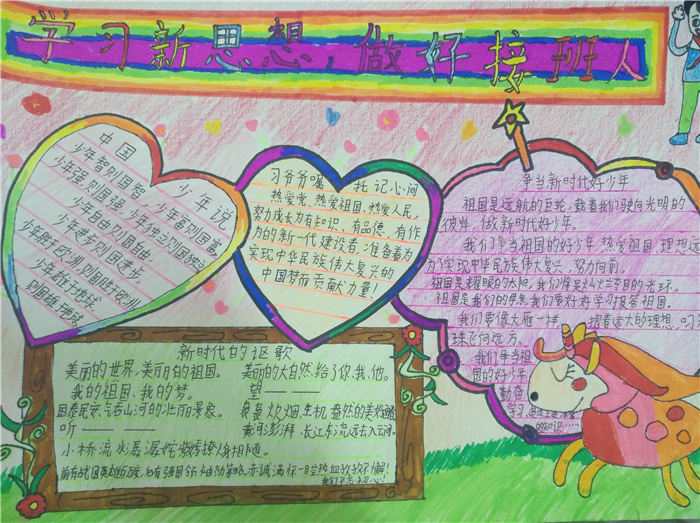 学习新思想,做好接班人
中国
少年说
少年智则国智 少年富则国富,
少年强则国强 少年独立则国独立
少年自由则国自由
少年进步则国进步,
少年胜于欧洲,则国胜于欧洲
少年雄于地球
则国雄于地球
习爷爷嘱托 记心间
热爱党、热爱祖国、热爱人民,
努力成长为有知识、有品德、有作
为的新一代建设者,准备着为
实现中华民族伟大复兴的
中国梦而贡献力量!
争当新时代好少年
祖国是远航的巨轮,载着我们驶向光明的
彼岸,做新时代好少年。
我们争当祖国的好少年,热爱祖国,理想远
为了实现中华民族伟大复兴,努力向前。
祖国是耀眼的太阳,我们将是灿烂夺目的光环。
祖国是我们的母亲,我们要好好学习报答祖国。
我们要像大雁一样, 抱着远大的理想,
球飞向远方。
我们争当祖
国的好少年
勤奋
学习
新时代的讴歌
美丽的世界,美丽的祖国。
我的祖国、我的梦。
听————
小桥流水潺潺
美丽的大自然,给了你、我、他。
望————
袅袅炊烟,生机盎然的美
戴河澎湃,长江东流远去入云间。
我们不忘初心!